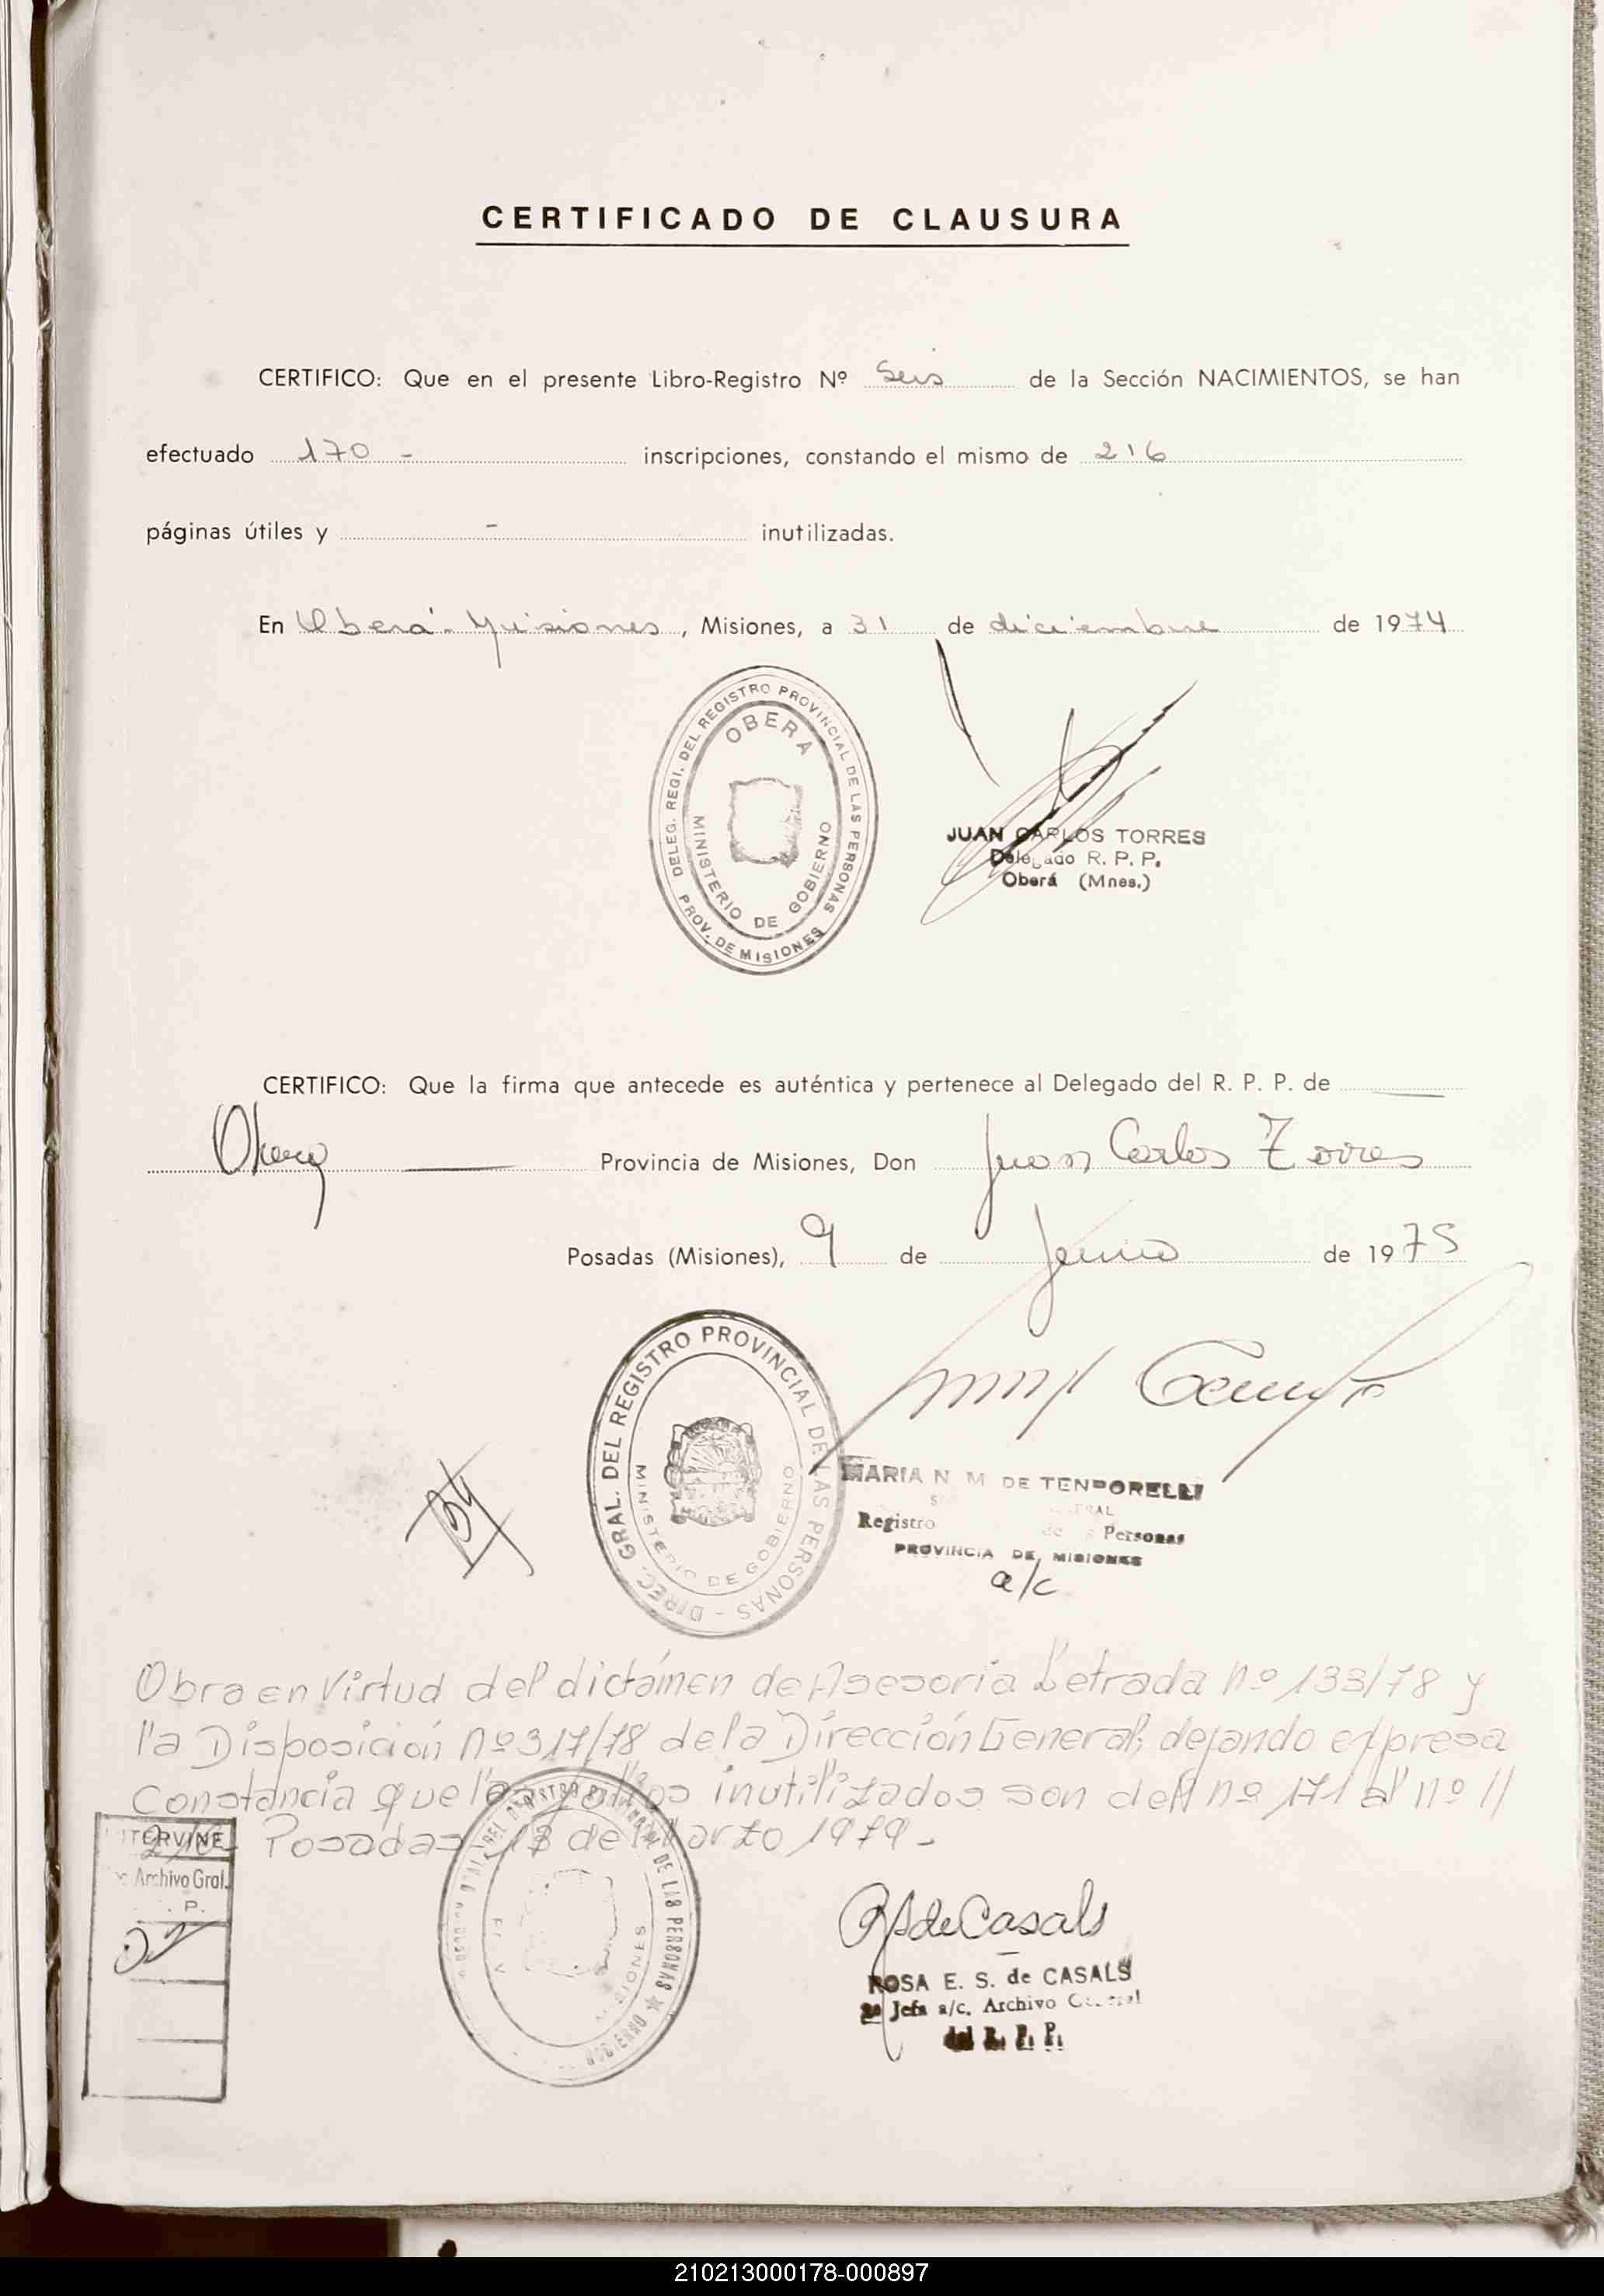 CERTIFICADO DE CLAUSURA
CERTIFICO: Que en el presente Libro-Registro Nº Seis de la Sección NACIMIENTOS, se han
efectuado 170 - inscripciones, constando el mismo de 216
páginas útiles y - inutilizadas.
En Oberá - Misiones, Misiones, a 31 de diciembre de 1974
DELEG. REGI. DEL REGISTRO PROVINCIAL DE LAS PERSONAS
OBERA
MINISTERIO DE GOBIERNO
PROV. DE MISIONES
JUAN CARLOS TORRES
Delegado R. P. P.
Oberá (Mnes.)
CERTIFICO: Que la firma que antecede es auténtica y pertenece al Delegado del R. P. P. de
Obera Provincia de Misiones, Don Juan Carlos Torres
Posadas (Misiones), 9 de Junio de 1975
DIREC. GRAL. DEL REGISTRO PROVINCIAL DE LAS PERSONAS -
MINISTERIO DE GOBIERNO
MARIA N. M. DE TEMPORELLI
Registro de Personas
PROVINCIA DE MISIONES
a/c
Obra en virtud del dictámen de Asesoria Letrada nº 133/78 y
la Disposición nº 317/78 de la Dirección General, dejando expresa
Constancia que los folios inutilizados son del nº 171 al nº
216 Posadas 13 de Marzo 1979 -
INTERVINE
Archivo Gral.
P.
DE LAS PERSONAS
GOBIERNO
MISIONES
RSdeCasals
ROSA E. S. de CASALS
2º Jefa a/c. Archivo General
del R. P. P.
210213000178-000897